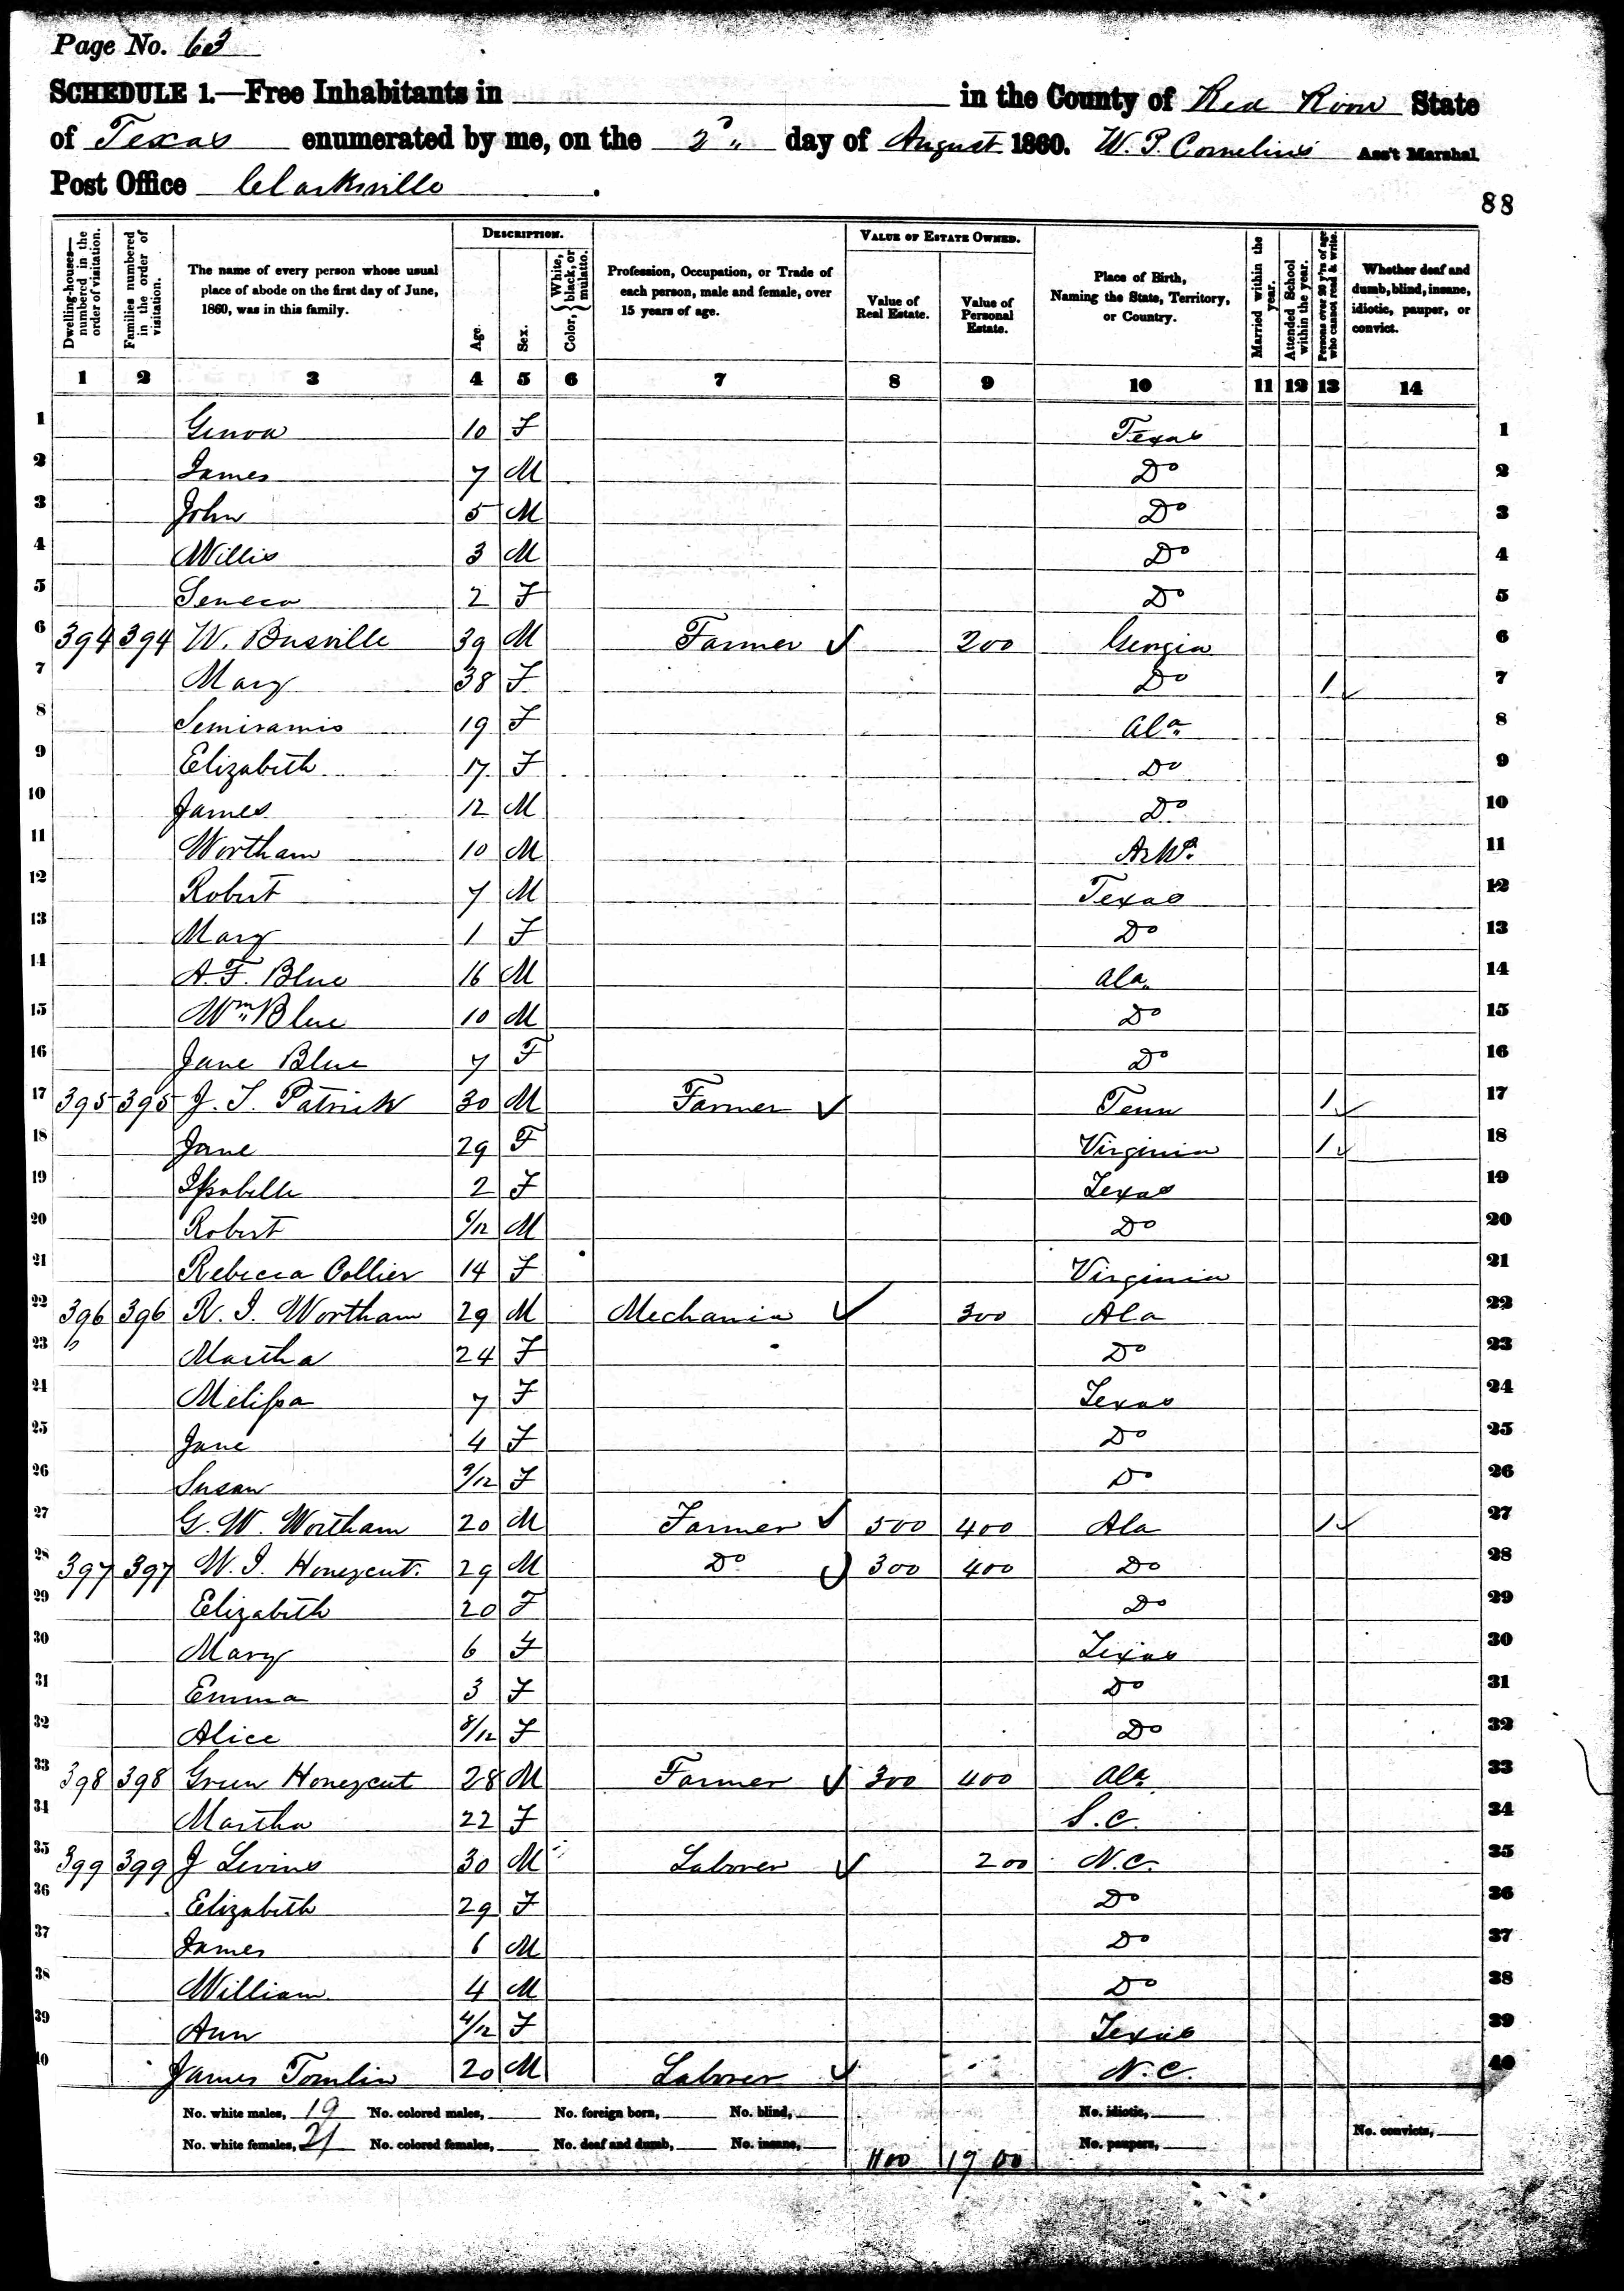 Page No. 63
SCHEDULE 1.—Free Inhabitants in in the County of Red River State
of Texas enumerated by me, on the 2" day of August 1860. W. P. Cornelius Ass't Marshal
Post Office Clarksville
88
Dwelling-houses—numbered in the order of visitation. Families numbered in the order of visitation. The name of every person whose usual place of abode on the first day of June, 1860, was in this family. DESCRIPTION. Age. Sex. Color, {White, black, or mulatto. Profession, Occupation, or Trade of each person, male and female, over 15 years of age. VALUE OF ESTATE OWNED. Value of Real Estate. Value of Personal Estate. Place of Birth, Naming the State, Territory, or Country. Married within the year. Attended School within the year. Persons over 20 y'rs of age who cannot read & write. Whether deaf and dumb, blind, insane, idiotic, pauper, or convict.
1 2 3 4 5 6 7 8 9 10 11 12 13 14
1 Genoa 10 F Texas 1
2 James 7 M Do 2
3 John 5 M Do 3
4 Willis 3 M Do 4
5 Seneca 2 F Do 5
6 394 394 W. Busville 39 M Farmer ✓ 200 Georgia 6
7 Mary 38 F Do 1 ✓ 7
8 Semiramis 19 F Ala 8
9 Elizabeth 17 F Do 9
10 James 12 M Do 10
11 Wortham 10 M Arks. 11
12 Robert 7 M Texas 12
13 Mary 1 F Do 13
14 A. F. Blue 16 M Ala. 14
15 Wm Blue 10 M Do 15
16 Jane Blue 7 F Do 16
17 395 395 J. T. Patrick 30 M Farmer ✓ Tenn 1 ✓ 17
18 Jane 29 F Virginia 1 ✓ 18
19 Issabelle 2 F Texas 19
20 Robert /12 M Do 20
21 Rebecca Collier 14 F Virginia 21
22 396 396 R. I. Wortham 29 M Mechanic ✓ 300 Ala 22
23 Martha 24 F Do 23
24 Melissa 7 F Texas 24
25 Jane 4 F Do 25
26 Susan 9/12 F Do 26
27 G. W. Wortham 20 M Farmer ✓ 500 400 Ala 1 ✓ 27
28 397 397 W. I. Honeycut. 29 M Do ✓ 300 400 Do 28
29 Elizabeth 20 F Do 29
30 Mary 6 F Texas 30
31 Emma 3 F Do 31
32 Alice 8/12 F Do 32
33 398 398 Green Honeycut 28 M Farmer ✓ 300 400 Ala 33
34 Martha 22 F S.C. 34
35 399 399 J Levins 30 M Laborer ✓ 200 N.C. 35
36 Elizabeth 29 F Do 36
37 James 6 M Do 37
38 William 4 M Do 38
39 Ann 4/12 F Texas 39
40 James Tomlin 20 M Laborer ✓ N.C. 40
No. white males, 19 No. colored males, No. foreign born, No. blind, No. idiotic,
No. white females, 21 No. colored females, No. deaf and dumb, No. insane, No. paupers, No. convicts,
1100 1900